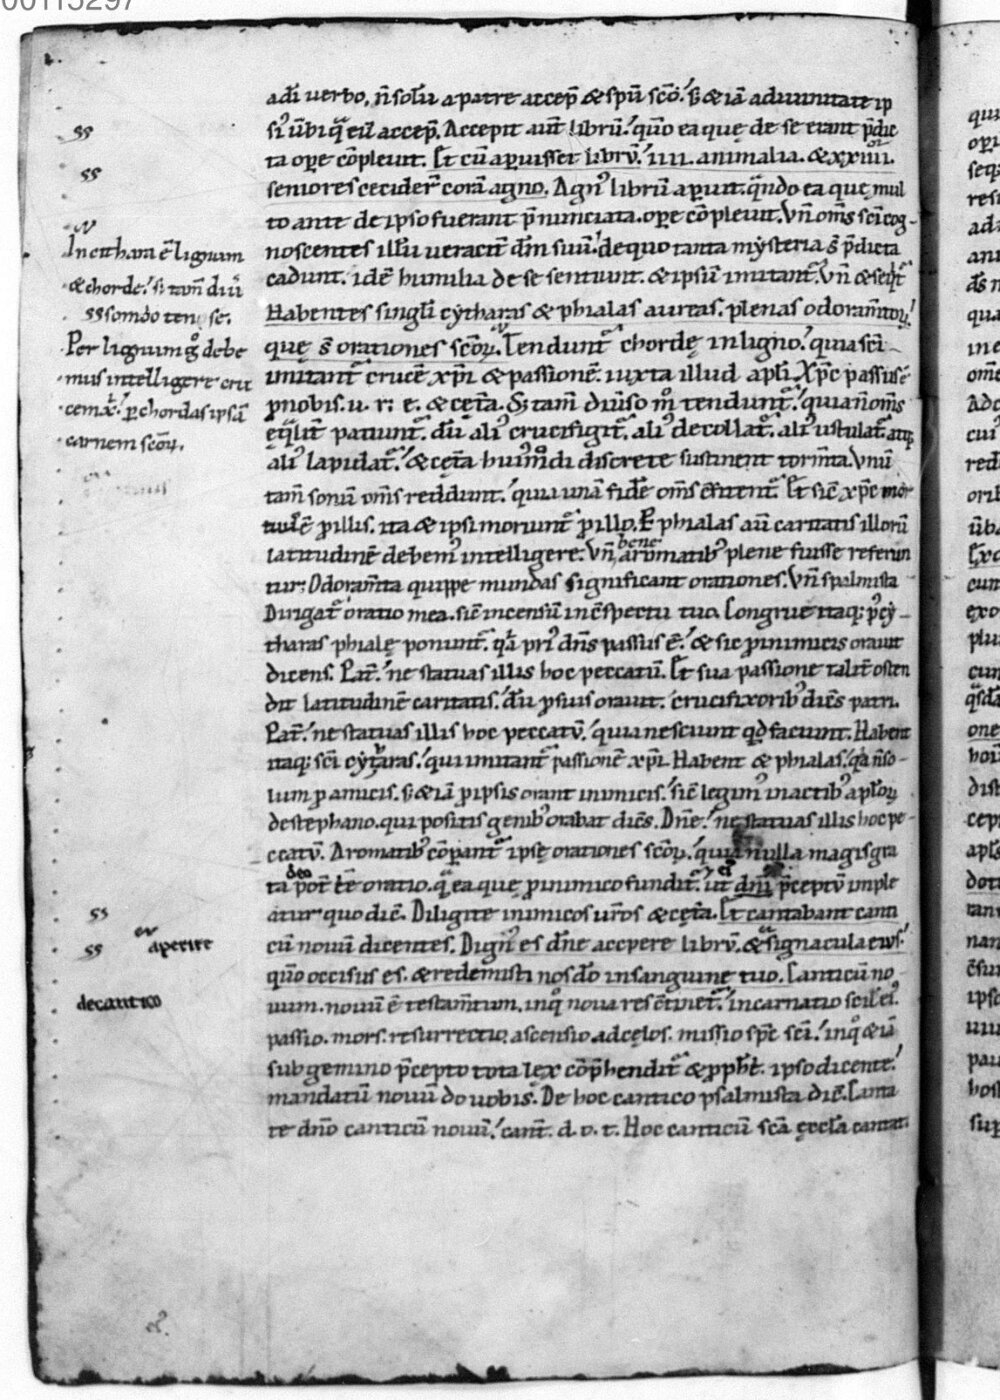 00115297
adi verbo, n̄ solū a patre accep̄ & sp̄u sc̄o. s; & iā ad uunitate ip
si' ūbi q̄ eiu accep̄. Accepit aūt librū. quō ea que de se erant p̄dic
ta ope cōpleuit. Et cū aperuisset librū. IIII. animalia. & XXIIII.
seniores cecider̄ corā agno. Agn' librū aperuit. q̄ndo ea que mul
to ante de ipso fuerant p̄nunciata. ope cōpleuit. Vn̄ om̄s sc̄i cog-
noscentes illū ueracit̄ dn̄m suū. de quo tanta mysteria s̄ p̄dicta
cadunt. idē humilia de se sentiunt. & ipsū imitant̄. Vn̄ & seq̄t̄
Habentes singli cytharas & phialas aureas. plenas odoram̄torꝝ.
que s̄ orationes sc̄orꝝ. Tendunt̄ chordę in ligno. quia sc̄i
imitant̄ crucē xp̄i & passionē. iuxta illud apl̄i. Xp̄c passus ē
p nobis. u. r. e. & cęt̄a. S; tam̄ diuerso m̊ tendunt̄. quia n̄ om̄s
eq̄lit̄ patiunt̄. dū ali' crucifigit̄. ali' decollat̄. ali' ustulat̄. atq;
ali' lapidat̄. & cęt̄a hui'modi discrete sustinent torm̄ta. Vnū
tam̄ sonū om̄s reddunt. quia unā fidē om̄s c̄fitent̄. Et sic xp̄c mor
tuus ē p illis. ita & ipsi moriunt̄ p illo. P phialas aū caritatis illorū
latitudinē debem' intelligere. Vn̄ bene aromatib' plene fuisse referun
tur. Odoram̄ta quippe mundas significant orationes. Vn̄ spalmista
Dirigat̄ oratio mea. sic incensū in c̄spectu tuo. Congrue itaq; p' cy-
tharas phialę ponunt̄. q̄a pri' dn̄s passus ē. & sic p inimicis orauit
dicens. Pat̄. ne statuas illis hoc peccatū. Et sua passione talit̄ osten
dit latitudinē caritatis. dū p suis orauit. crucifixorib' dicēs patri.
Pat̄. ne statuas illis hoc peccatū. quia nesciunt qd faciunt. Habent
itaq; sc̄i cytharas. qui imitant̄ passionē xp̄i. Habent & phialas. q̄a n̄ so-
lum p amicis. s; & iā p ipsis orant inimicis. sic legim' in actib' apl̄orꝝ
de stephano. qui positis genib' orabat dicēs. Dn̄e. ne statuas illis hoc pe-
ccatū. Aromatib' cōpant̄ ipsę orationes sc̄orꝝ. quia nulla magis gra
ta deo pot̄ ēē oratio. q̄ ea que p inimico fundit̄. ut dn̄i p̄ceptū imple
atur quo dic̄. Diligite inimicos ur̄os & cęt̄a. Et cantabant canti
cū nouū dicentes. Dign' es dn̄e accipere librū. & signacula eius.
quō occisus es. & redemisti nos dō in sanguine tuo. Canticū no-
uum. nouū ē testam̄tum. in q̊ noua res c̄tinet̄. incarnatio scil. ei'.
passio. mors. resurrectio. ascensio ad cęlos. missio sp̄c sc̄i. in q̊ & iā
sub gemino p̄cepto tota lex cōp̄hendit̄ & pph̄e. ipso dicente.
mandatū nouū do uobis. De hoc cantico psalmista dic̄. Canta
te dn̄o canticū nouū. cant̄. d. o. t. Hoc canticū sc̄a ęccl̄a cantat
In cithara ē lignum
& chordę. s; tam̄ diū
Per lignum g̊ debe
mus intelligere cru
cem x. p chordas ipsā
carnem sc̄orꝝ.
aperire
de cantico